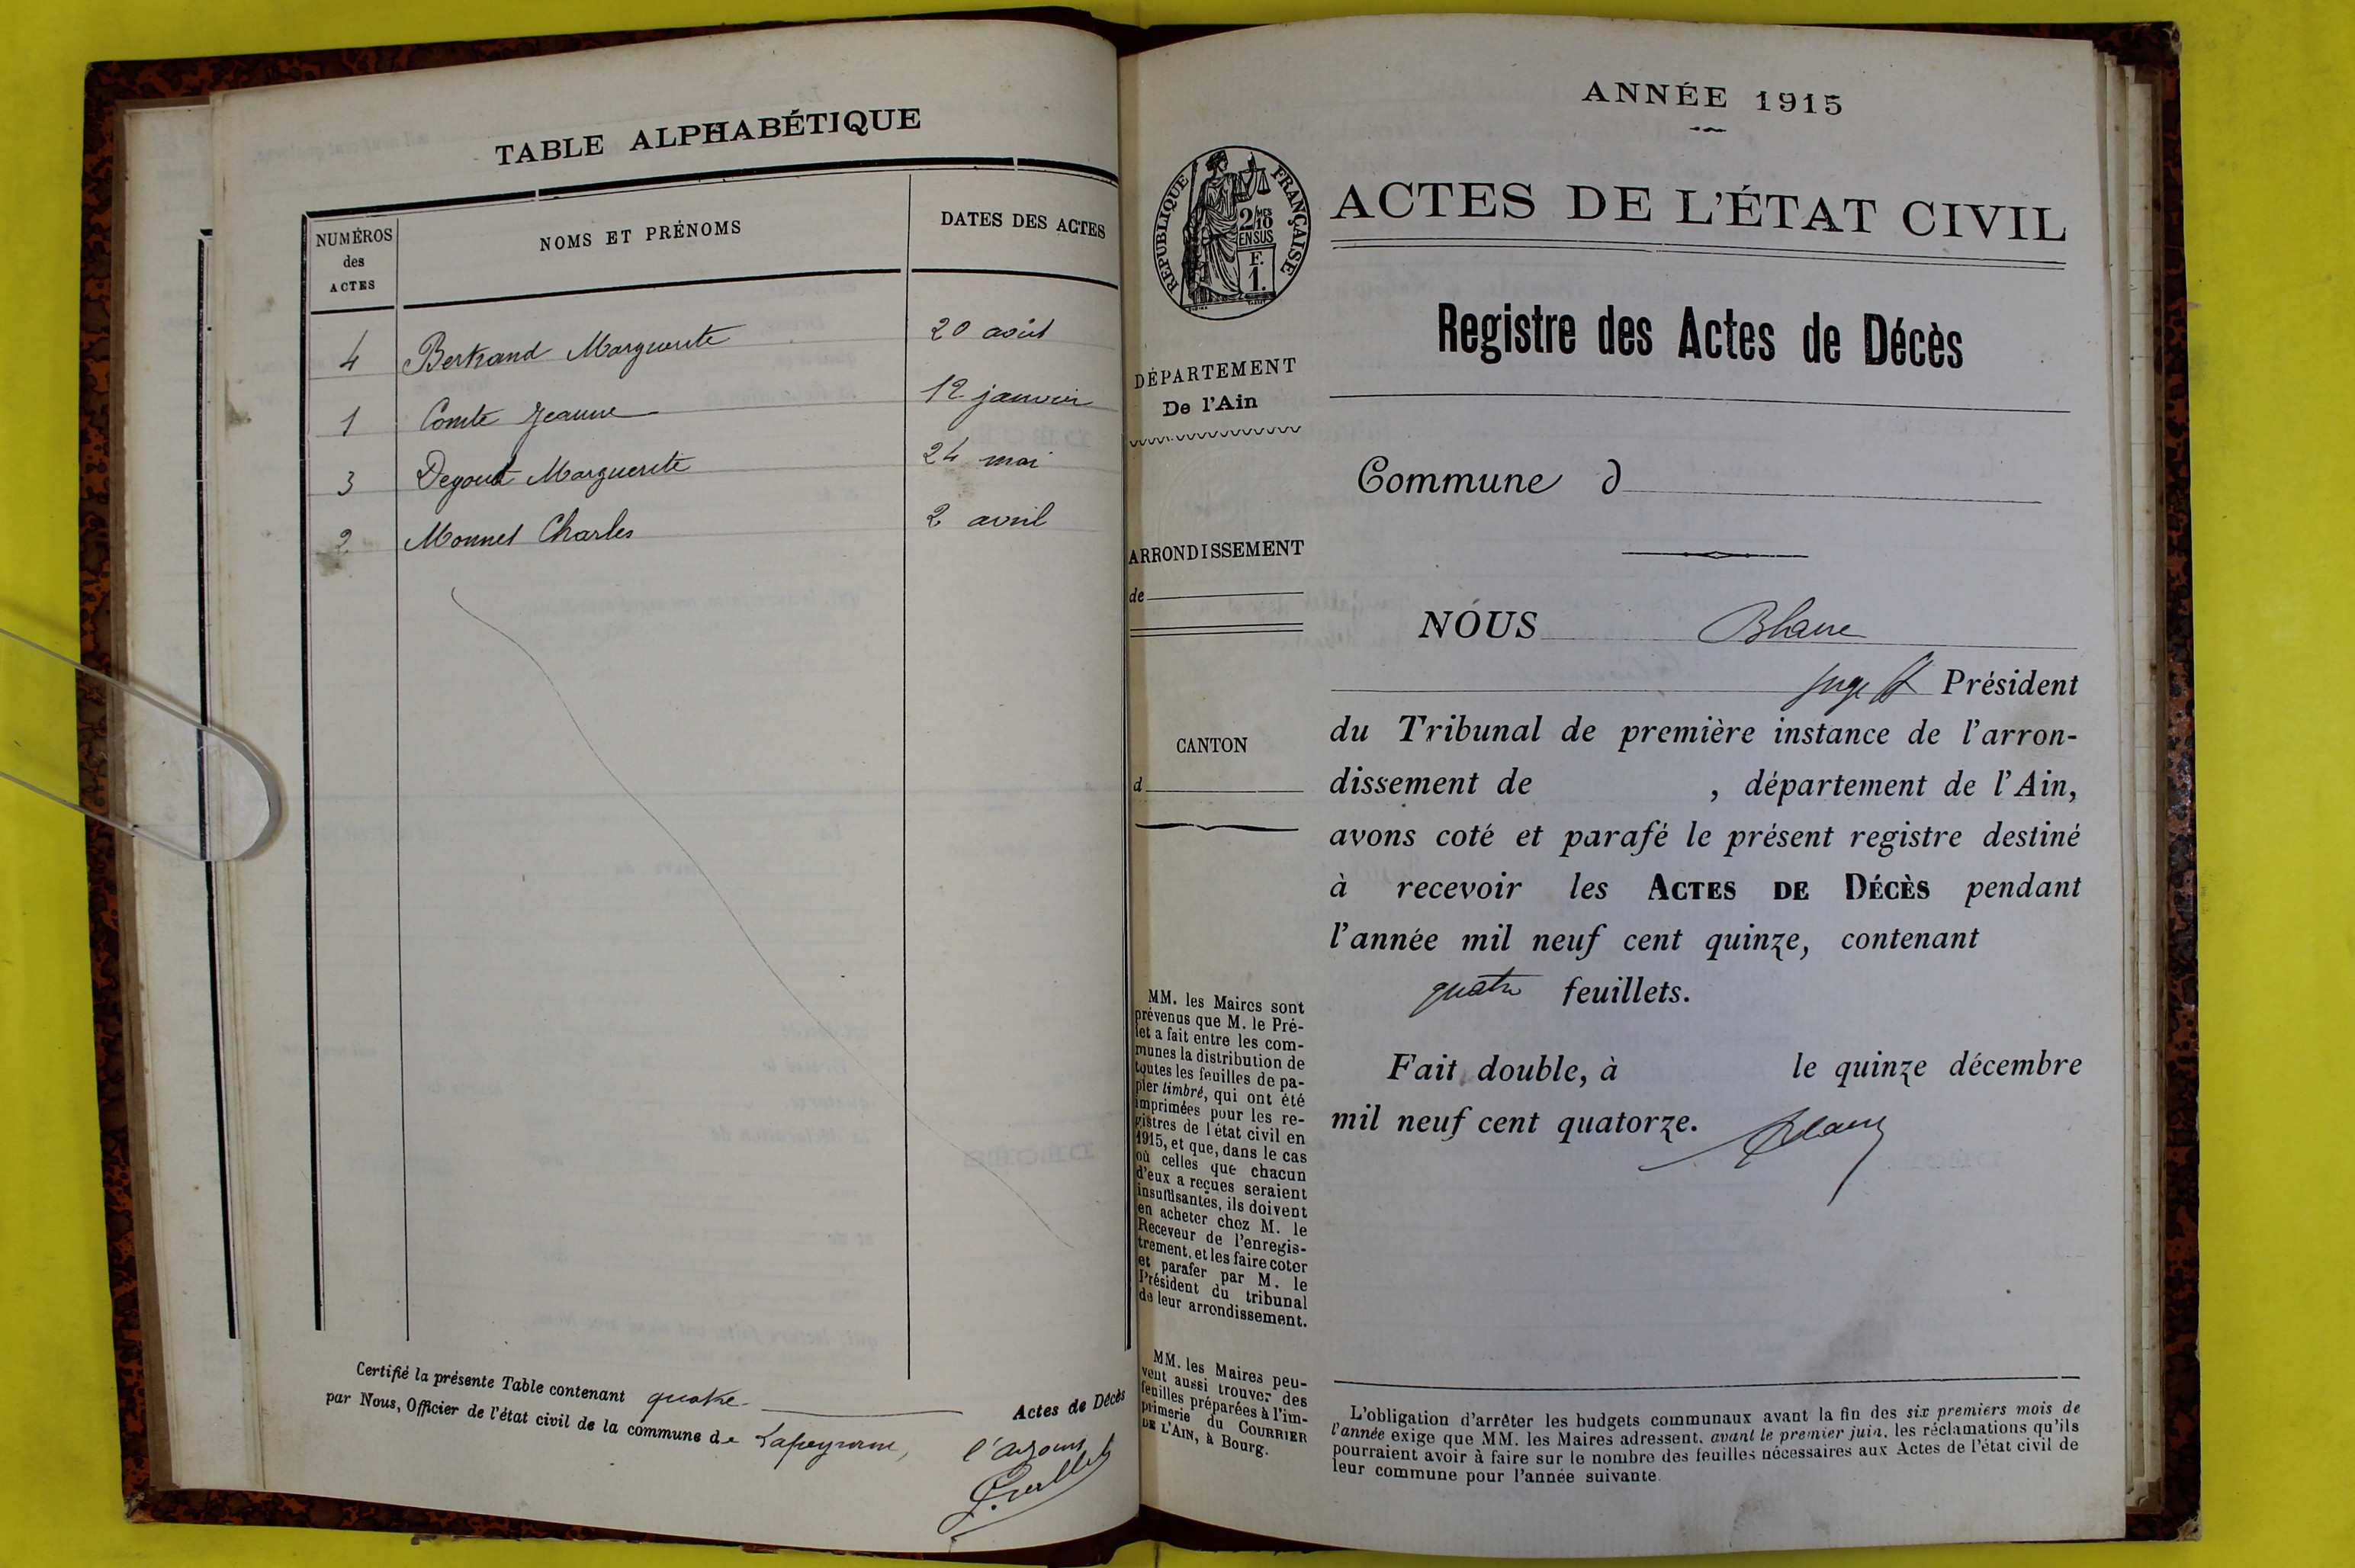 TABLE ALPHABÉTIQUE
NUMÉROS des ACTES
NOMS ET PRÉNOMS
DATES DES ACTES
4 Bertrand Marguerite 20 août
1 Comte Jeanne 12 janvier
3 Degout Marguerite 24 mai
2 Monnet Charles 2 avril
Certifié la présente Table contenant quatre Actes de Décès
par Nous, Officier de l'état civil de la commune de Lapeyrouse, l'adjoint
ANNÉE 1915
RÉPUBLIQUE FRANÇAISE
2/10MES
EN SUS
F.
1.
ACTES DE L'ÉTAT CIVIL
Registre des Actes de Décès
DÉPARTEMENT
De l'Ain
Commune d
ARRONDISSEMENT
de
CANTON
d
NOUS Blanc
juge ff Président
du Tribunal de première instance de l'arron-
dissement de , département de l'Ain,
avons coté et parafé le présent registre destiné
à recevoir les ACTES DE DÉCÈS pendant
l'année mil neuf cent quinze, contenant
quatre feuillets.
Fait double, à le quinze décembre
mil neuf cent quatorze.
Blanc
MM. les Maires sont
prévenus que M. le Pré-
fet a fait entre les com-
munes la distribution de
toutes les feuilles de pa-
pier timbré, qui ont été
imprimées pour les re-
gistres de l'état civil en
1915, et que, dans le cas
où celles que chacun
d'eux a reçues seraient
insuffisantes, ils doivent
en acheter chez M. le
Receveur de l'enregis-
trement, et les faire coter
et parafer par M. le
Président du tribunal
de leur arrondissement.
MM. les Maires peu-
vent aussi trouver des
feuilles préparées à l'im-
primerie du COURRIER
DE L'AIN, à Bourg.
L'obligation d'arrêter les budgets communaux avant la fin des six premiers mois de
l'année exige que MM. les Maires adressent, avant le premier juin, les réclamations qu'ils
pourraient avoir à faire sur le nombre des feuilles nécessaires aux Actes de l'état civil de
leur commune pour l'année suivante.